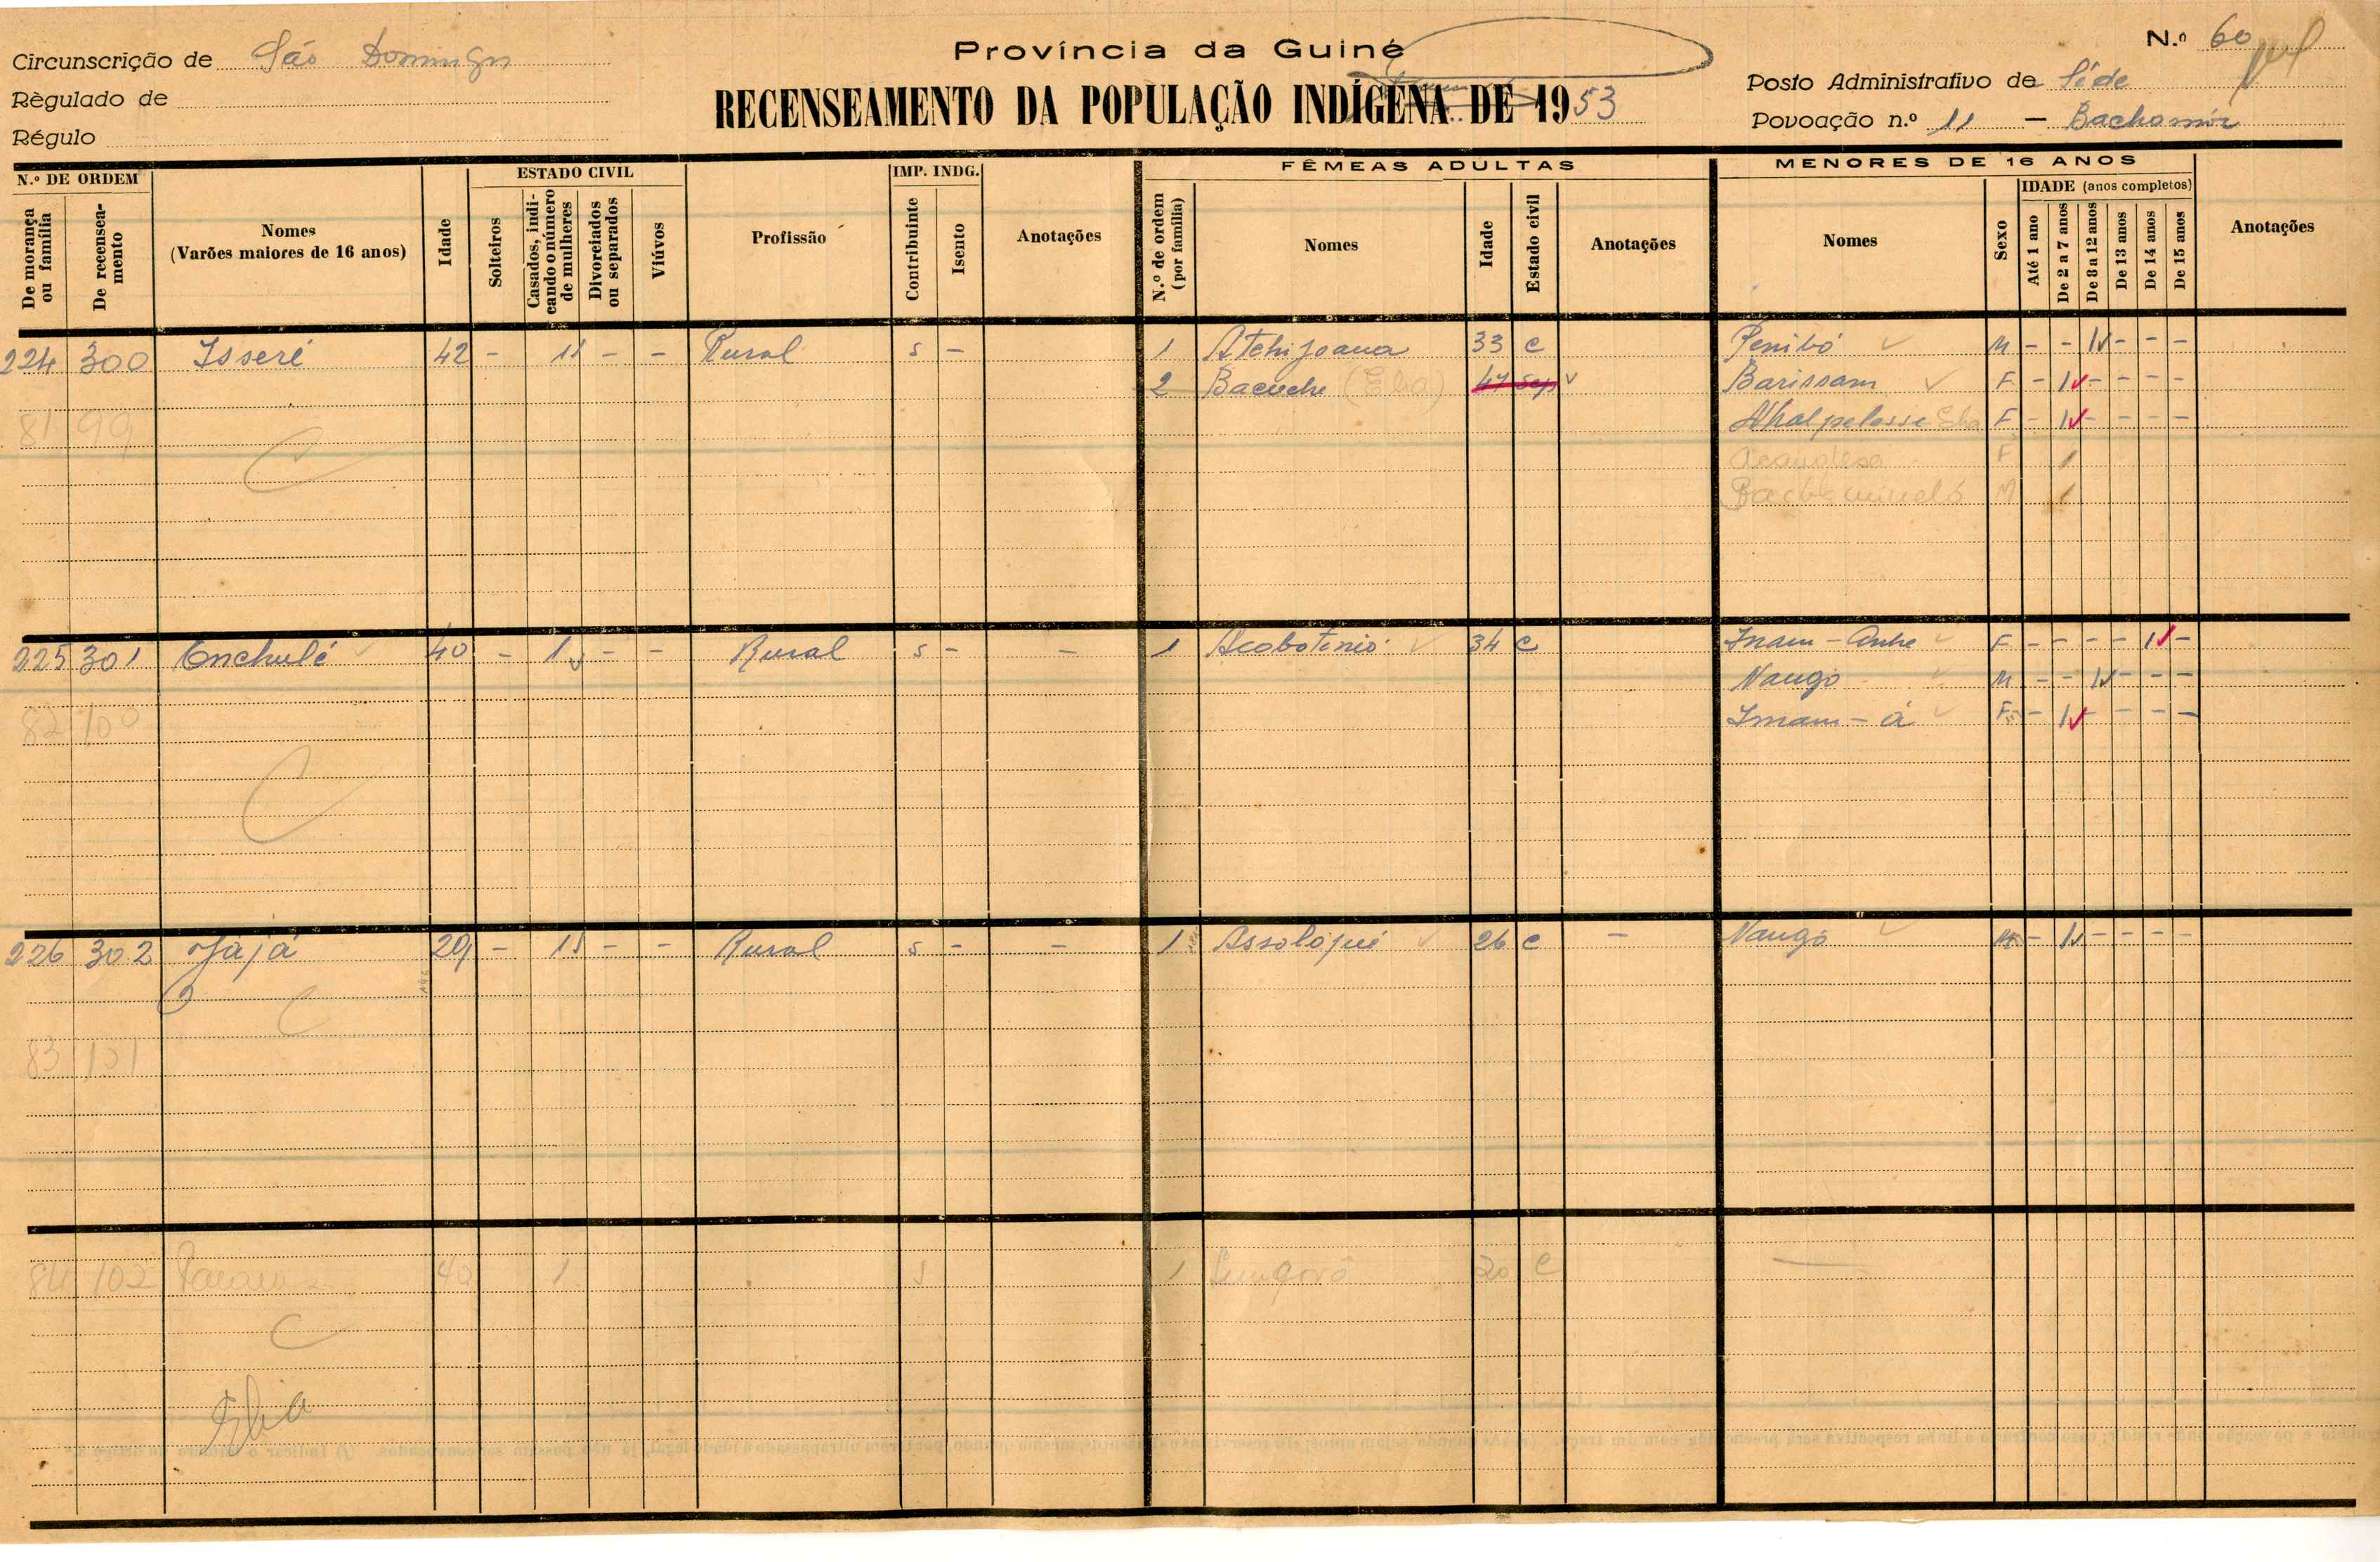 Província da Guiné
N.º 60
Circunscrição de São Domingos
Posto Administrativo de Séde
Règulado de
RECENSEAMENTO DA POPULAÇÃO INDÍGENA DE 1953
Povoação n.º 11 —
Régulo
N.º DE ORDEM
De morança ou família
De recenseamento
Nomes
(Varões maiores de 16 anos)
Idade
ESTADO CIVIL
Solteiros
Casados, indicando o número de mulheres
Divorciados ou separados
Viúvos
Profissão
IMP. INDG.
Contribuinte
Isento
Anotações
FÊMEAS ADULTAS
N.º de ordem (por família)
Nomes
Idade
Estado civil
Anotações
MENORES DE 16 ANOS
Nomes
Sexo
IDADE (anos completos)
Até 1 ano
De 2 a 7 anos
De 8 a 12 anos
De 13 anos
De 14 anos
De 15 anos
Anotações
224 300 Isseré 42 - 1 - - Rural s - 1 Atchijoana 33 c Penibó M - - 1 - - -
2 Bacuche (Elia) 47 sep Barissam F - 1 - - - -
Elia F - 1 - - - -
81 99
F 1
M 1
225 301 Enchulé 40 - 1 - - Rural s - - 1 34 c Inam - Anhe F - - - - 1 -
Nango M - - 1 - - -
82 100 Imam - á F - 1 - - - -
226 302 Jájá 29 - 1 - - Rural s - - 1 26 c - Nango M - 1 - - - -
83 101
84 102 40 1 s 1 20 c —
Elia